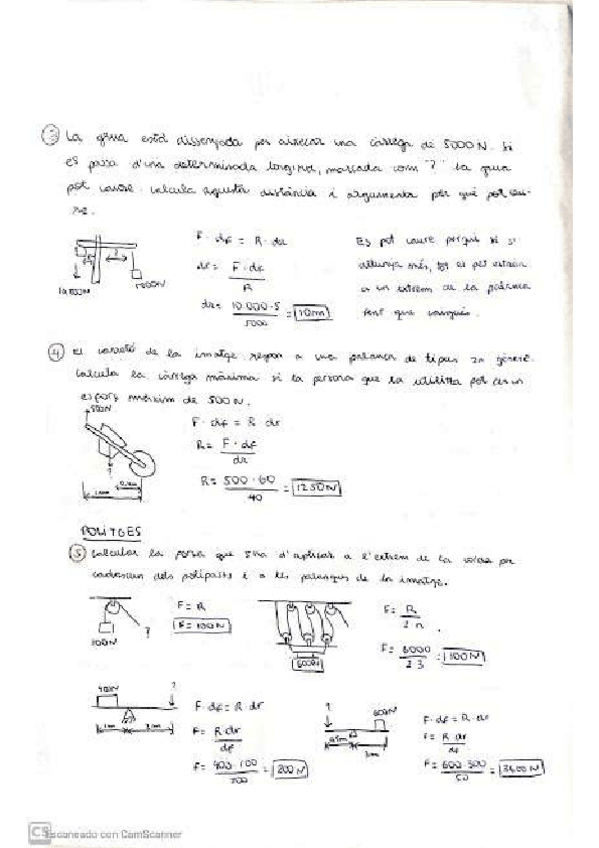 ③ La grua està dissenyada per aixecar una càrrega de 5000N. Si
es passa d'una determinada longitud, marcada com "?" la grua
pot caure. Calcula aquesta distància i argumenta per què pot cau-
re.
F · dF = R · dR
dR = F · dF / R
dR = 10.000 · 5 / 5000 = 10m
Es pot caure perquè si s'
allunya més,
en un extrem de la palanca
fent que caigués.
④ El carretó de la imatge respon a una palanca de tipus 2n gènere.
Calcula la càrrega màxima si la persona que la utilitza pot fer un
esforç màxim de 500N.
500N
F · dF = R · dR
R = F · dF / dR
R = 500 · 60 / 40 = 1250N
?
POLITGES
⑤ Calcular la força que s'ha d'aplicar a l'extrem de la corda per
cadascun dels polipasts i a les palanques de la imatge.
100N
?
F = R
F = 100N
600N
F = R / 2·n
F = 6000 / 2·3 = 100N
400N
?
1m
2m
F · dF = R · dR
F = R · dR / dF
F = 400 · 100 / 200 = 200N
?
600N
3m
F · dF = R · dR
F = R · dR / dF
F = 600 · 300
CS Escaneado con CamScanner